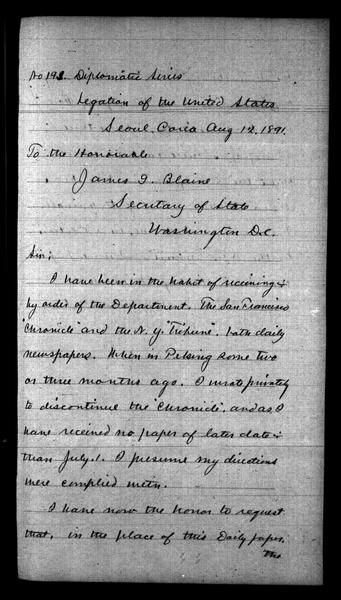 No 193. Diplomatic Series
Legation of the United States
Seoul, Corea Aug 12, 1891.
To the Honorable
James G. Blaine
Secretary of State
Washington D.C.
Sir;
I have been in the habit of receiving
by order of the Department. The San Francisco
"Chronicle" and the N. Y. "Tribune", both daily
newspapers. When in Peking some two
or three months ago. I wrote privately
to discontinue the "Chronicle", and as I
have received no paper of later date
than July 1. I presume my directions
were complied with.
I have now the honor to request
that, in the place of this Daily paper,
the